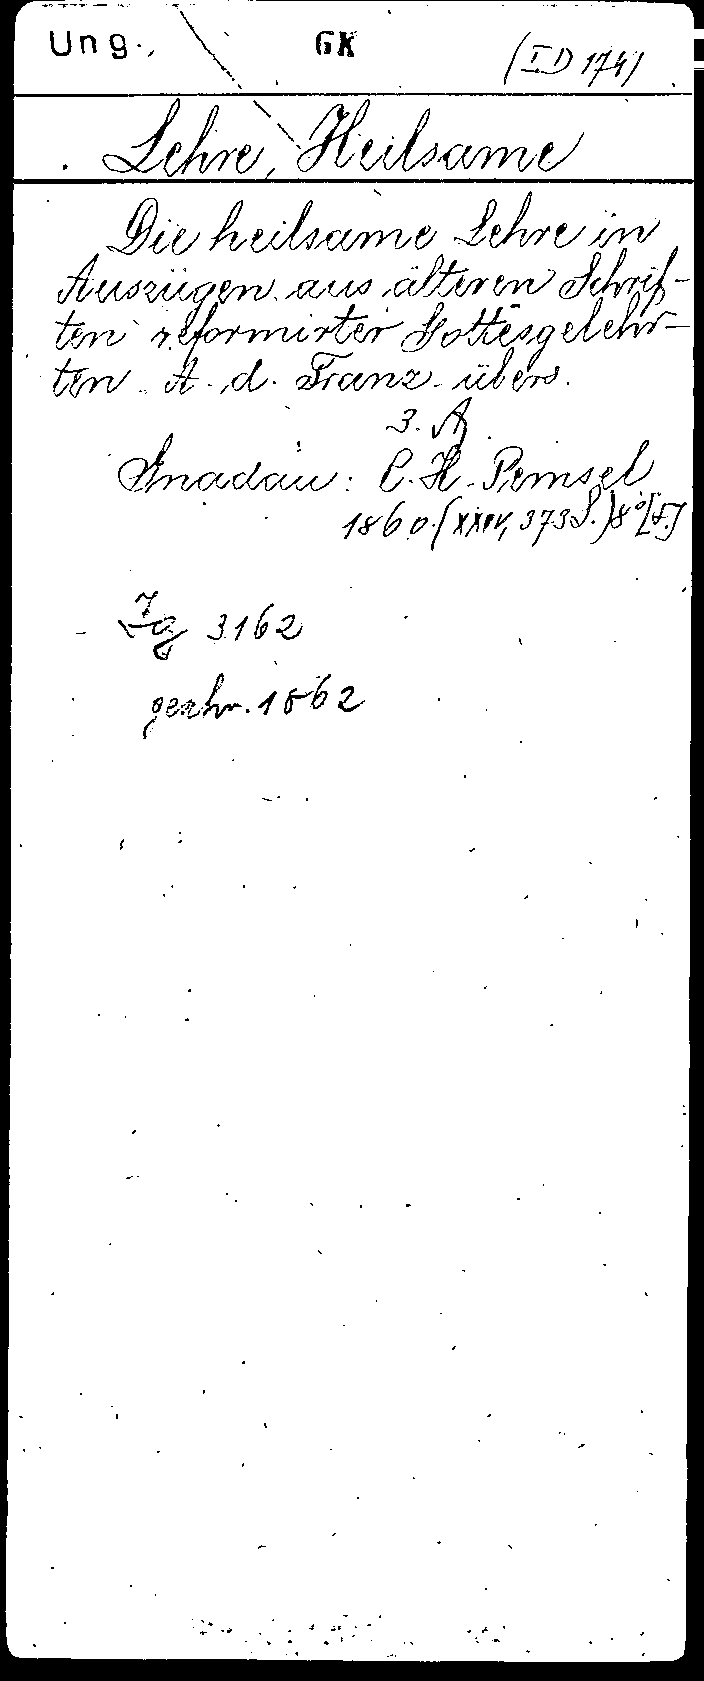 Ung. GK (I D 174)
Lehre, Heilsame
Die heilsame Lehre in
Auszügen aus älteren Schrif-
ten reformirter Gottesgelehr-
ten. A. d. Franz. übers.
3. A.
Gnadau: C. H. Pemsel
1860. (XXIV, 373 S.) 8° [8.]
Zg 3162
geschr. 1862